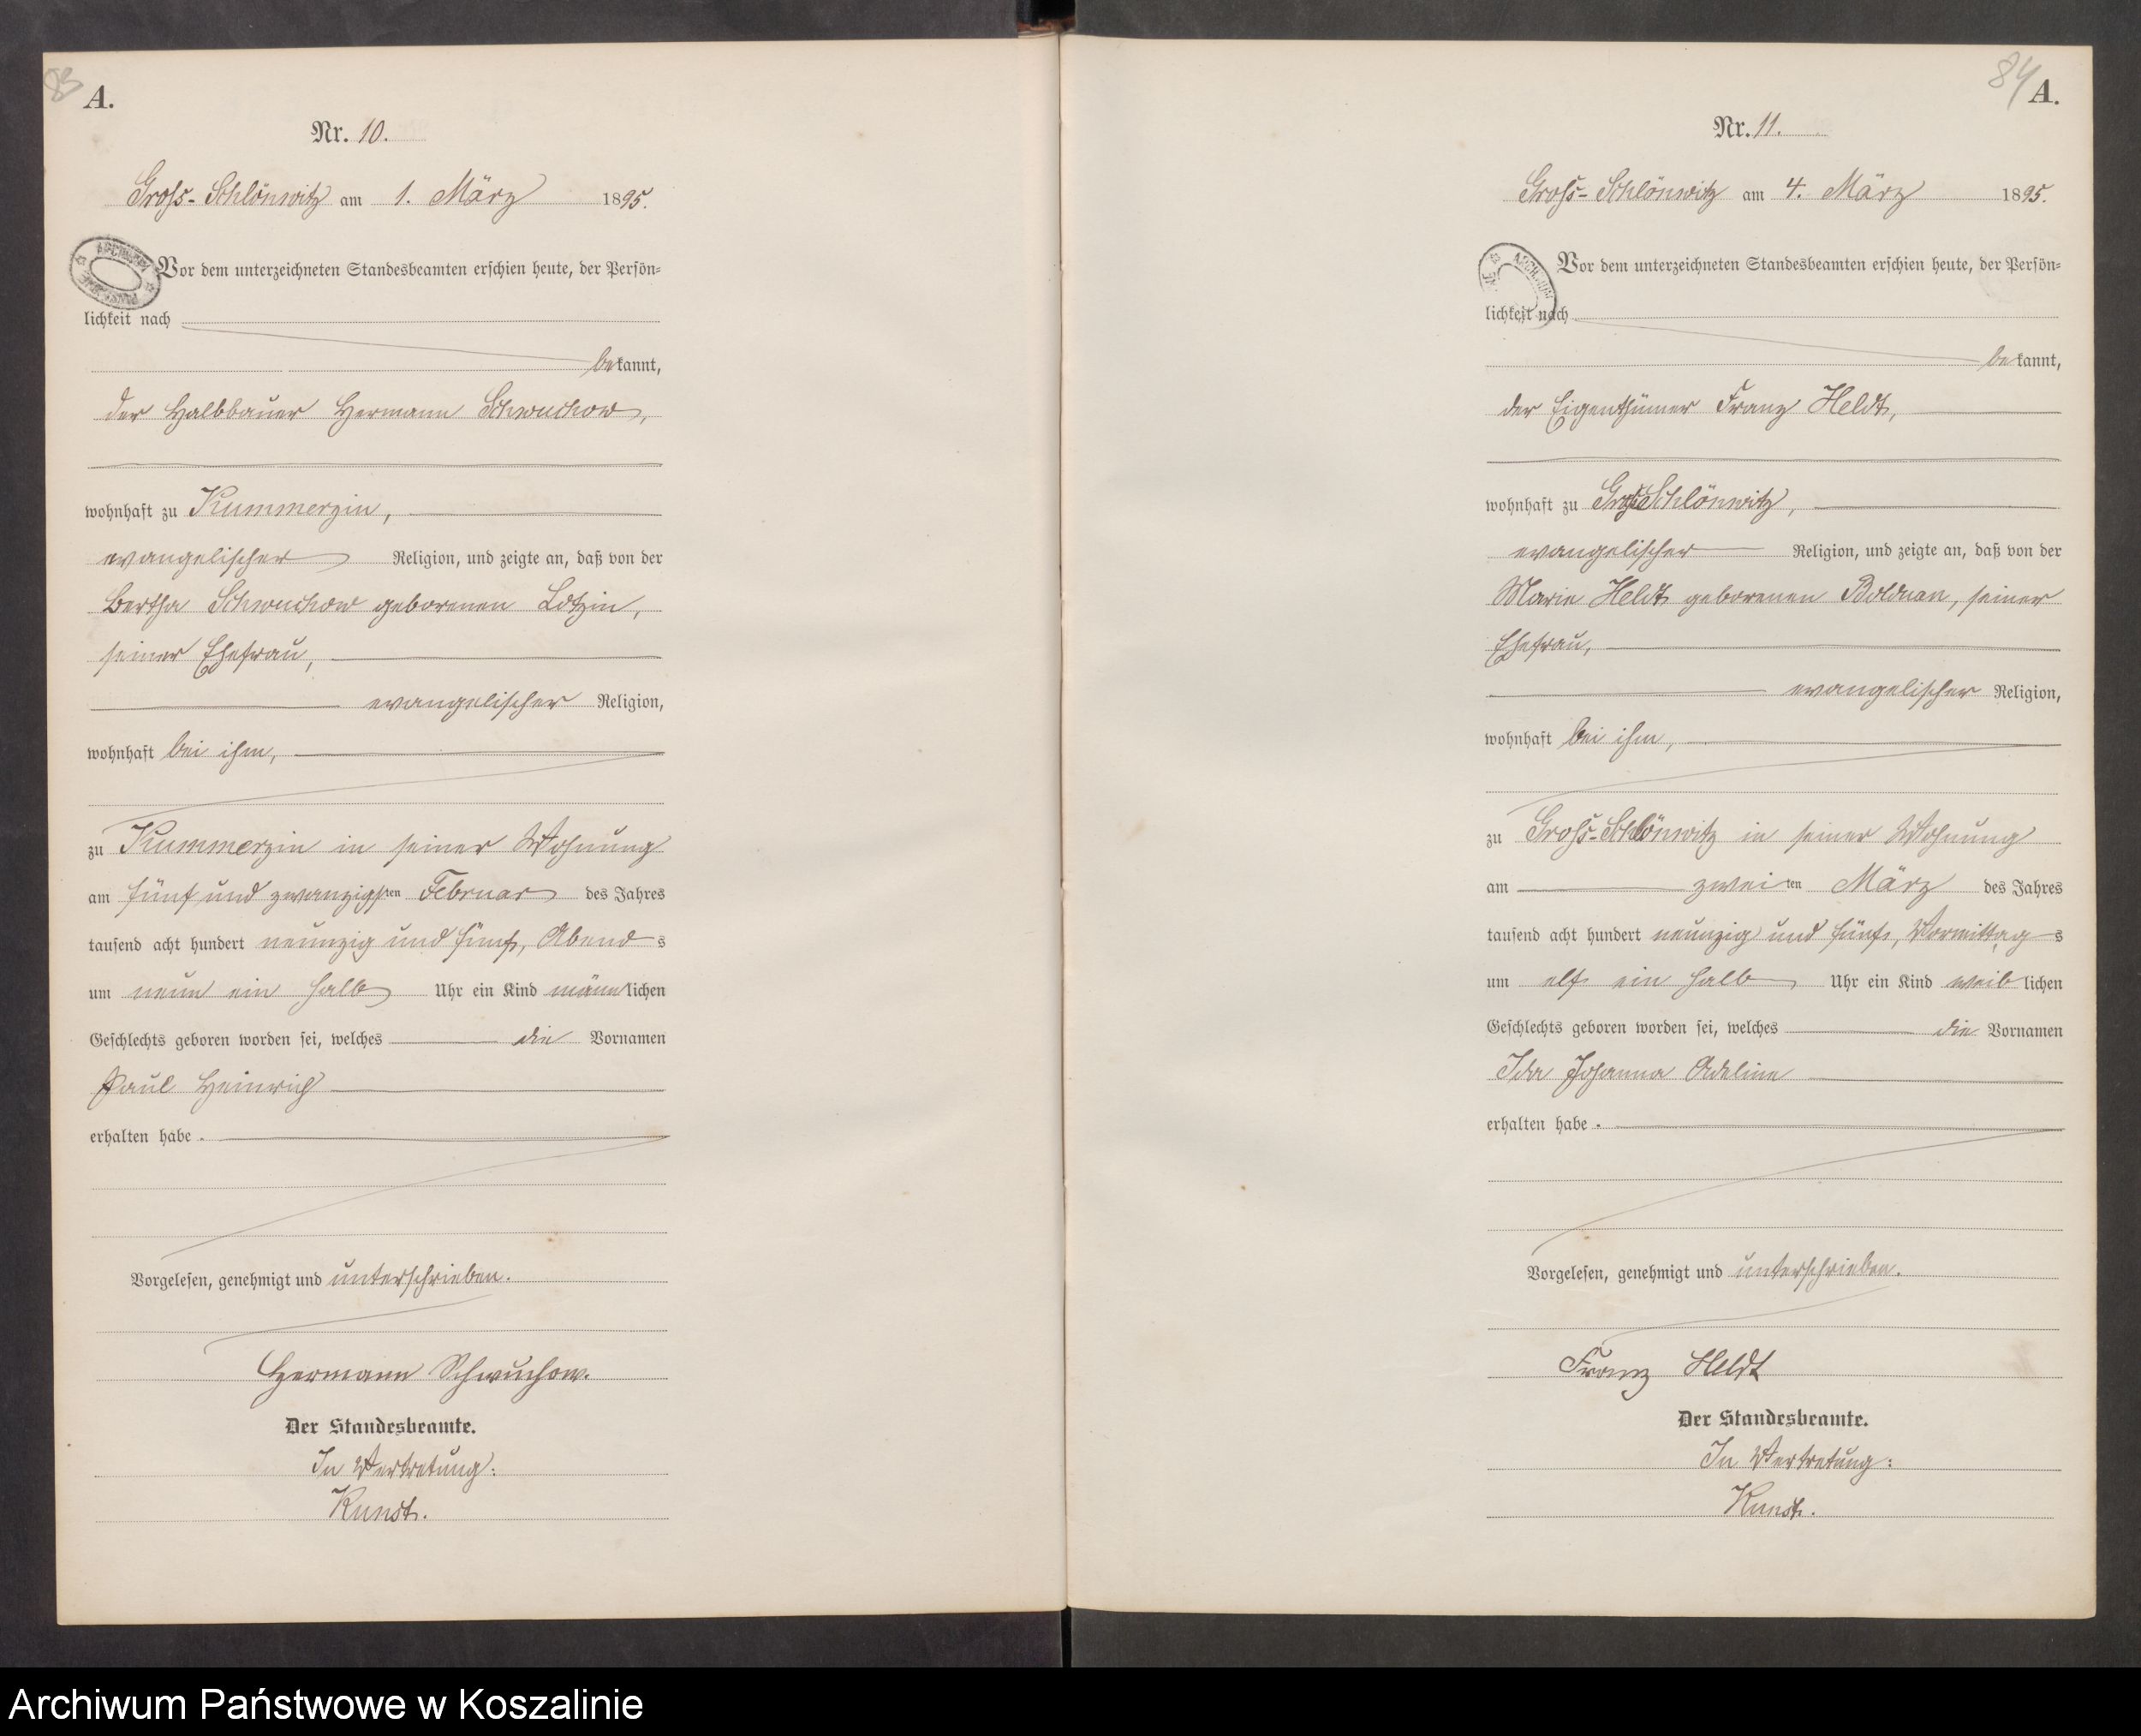 83
A.
Nr. 10.
Groß-Schlönwitz am 1. März 1895.
Vor dem unterzeichneten Standesbeamten erschien heute, der Persön-
lichkeit nach
bekannt,
der Halbbauer Hermann Schwuchow,
wohnhaft zu Kummerzin,
evangelischer Religion, und zeigte an, daß von der
Bertha Schwuchow geborenen Lotzin,
seiner Ehefrau,
evangelischer Religion,
wohnhaft bei ihm,
zu Kummerzin in seiner Wohnung
am fünf und zwanzigsten Februar des Jahres
tausend acht hundert neunzig und fünf, Abends
um neun ein halb Uhr ein Kind männlichen
Geschlechts geboren worden sei, welches die Vornamen
Paul Heinrich
erhalten habe.
Vorgelesen, genehmigt und unterschrieben.
Hermann Schwuchow.
Der Standesbeamte.
In Vertretung:
Kunst.
84
A.
Nr. 11.
Groß-Schlönwitz am 4. März 1895.
Vor dem unterzeichneten Standesbeamten erschien heute, der Persön-
lichkeit nach
bekannt,
der Eigenthümer Franz Heldt,
wohnhaft zu Groß Schlönwitz,
evangelischer Religion, und zeigte an, daß von der
Marie Heldt geborenen Bolduan, seiner
Ehefrau,
evangelischer Religion,
wohnhaft bei ihm,
zu Groß-Schlönwitz in seiner Wohnung
am zweiten März des Jahres
tausend acht hundert neunzig und fünf, Vormittags
um elf ein halb Uhr ein Kind weiblichen
Geschlechts geboren worden sei, welches die Vornamen
Ida Johanna Adeline
erhalten habe.
Vorgelesen, genehmigt und unterschrieben.
Franz Heldt
Der Standesbeamte.
In Vertretung:
Kunst.
Archiwum Państwowe w Koszalinie